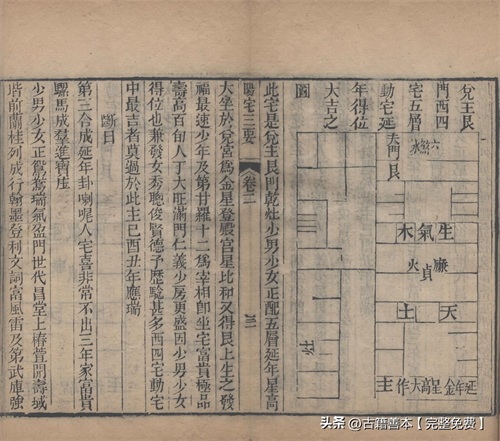 兌主艮
門西四
宅五層
動宅延
年得位
大吉之
圖
六煞水
大門艮
生氣木
廉貞火
天土
延年金星高大作主
灶
此宅是兌主艮門乾灶少男少女正配五層延年星高
大坐於兌宮爲金星登殿宮星比和又得艮土生之發
福最速少年及第甘羅十二爲宰相卽坐宅富貴極品
壽高百旬人丁大旺滿門仁義少房更盛因少男少女
得位也兼發女秀聰俊賢德予歷驗甚多西四宅動宅
中最吉者莫過於此主巳酉丑年應瑞
陽宅三要 卷二
斷曰
第三合成延年卦喇呢人宅喜非常不出三年家富貴
騾馬成羣進寶庄
少男少女正鴛鴦瑞氣盈門世代昌堂上椿萱開壽域
階前蘭桂列成行翰墨登利文詞富風雷及第武庫強
头条 @古籍善本【完整免费】